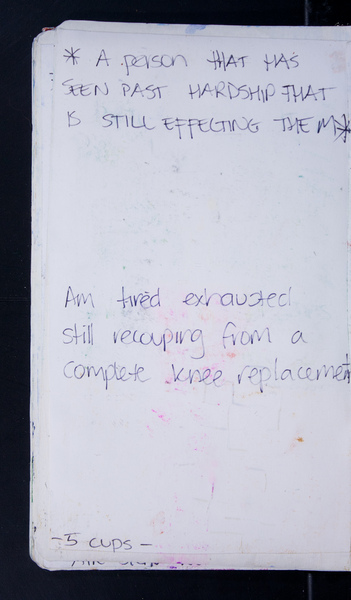 * A person THAT HAS
SEEN PAST HARDSHIP THAT
IS STILL EFFECTING THEM*
Am tired exhausted
still recouping from a
complete knee replacement
-5 cups-